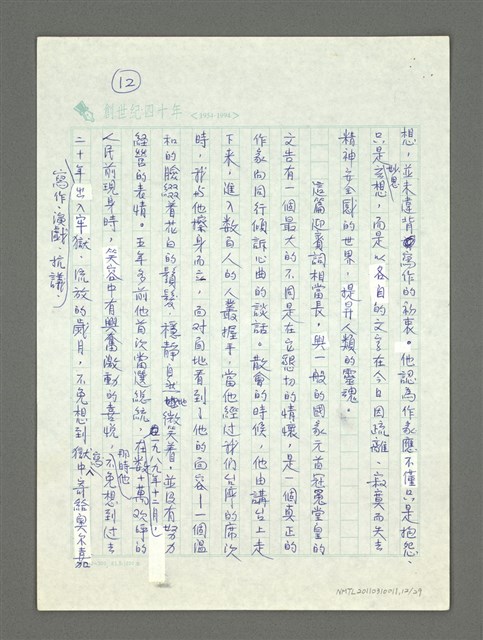 12
創世紀四十年 <1954-1994>
想，並未違背寫作的初衷。他認為作家應不僅只是抱怨、
只是玄想，妙思而是以各自的文字在今日因疏離、寂寞而失去
精神安全感的世界，提昇人類的靈魂。
這篇迎賓詞相當長，與一般的國家元首冠冕堂皇的
文告有一個最大的不同是在它懇切的情懷，是一個真正的
作家向同行傾訴心曲的談話。散會的時候，他由講台上走
下來，進入數百人的人叢握手，當他經過我們台席的席次
時，我與他擦身而立，面對面地看到了他的面容—一個溫
和的臉綴著花白的鬚髮，穩靜自在地微笑著，並沒有努力
經營的表情。五年多前他首次當選總統，在一九八九年十二月，在數十萬歡呼的
人民前現身時，笑容中有興奮激動的喜悅，那時他不免想到過去
二十年出入牢獄、流放的歲月，不免想到獄中寫寄給奧爾嘉
寫作、演戲、抗議、
NMTL20110310011,12/29